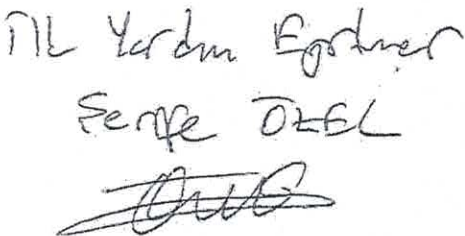 İlk Yardım Eğitmeni
Şerife ÖZEL